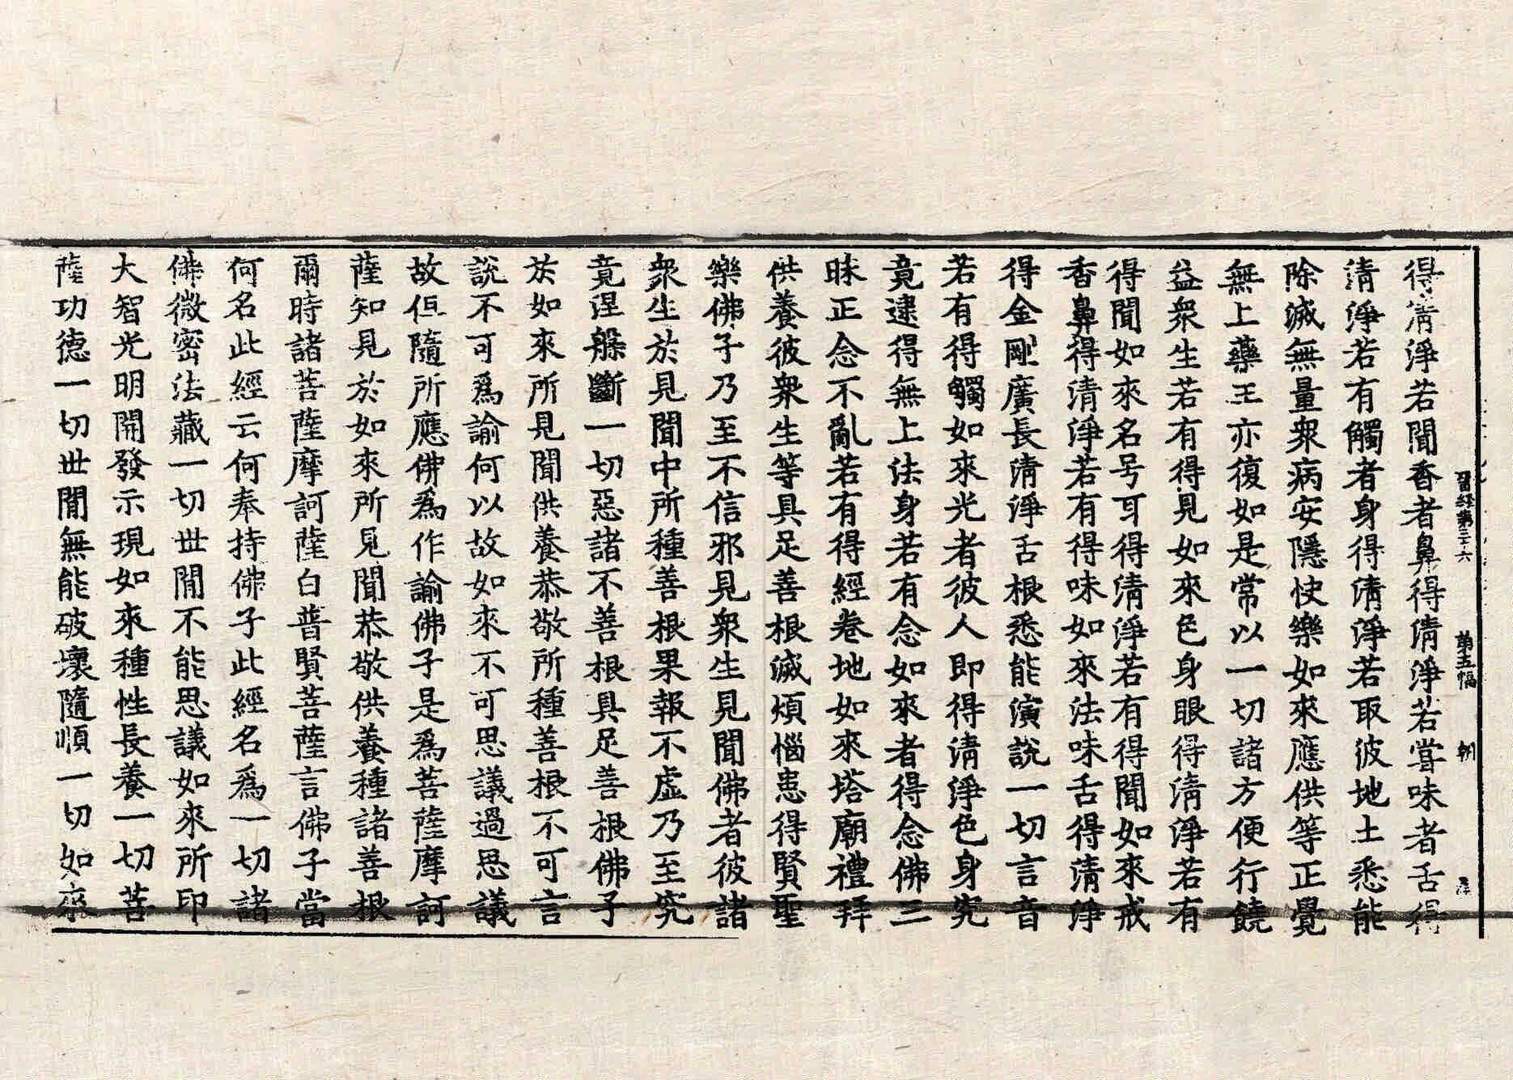 晉經第三十六　第五幅　朝
得清淨若聞香者鼻得清淨若嘗味者舌得
清淨若有觸者身得清淨若取彼地土悉能
除滅無量衆病安隱快樂如來應供等正覺
無上藥王亦復如是常以一切諸方便行饒
益衆生若有得見如來色身眼得清淨若有
得聞如來名号耳得清淨若有得聞如來戒
香鼻得清淨若有得味如來法味舌得清淨
得金剛廣長清淨舌根悉能演說一切言音
若有得觸如來光者彼人即得清淨色身究
竟逮得無上法身若有念如來者得念佛三
昧正念不亂若有得經卷地如來塔廟禮拜
供養彼衆生等具足善根滅煩惱患得賢聖
樂佛子乃至不信邪見衆生見聞佛者彼諸
衆生於見聞中所種善根果報不虛乃至究
竟涅槃斷一切惡諸不善根具足善根佛子
於如來所見聞供養恭敬所種善根不可言
說不可爲諭何以故如來不可思議過思議
故但隨所應佛爲作諭佛子是爲菩薩摩訶
薩知見於如來所見聞恭敬供養種諸善根
爾時諸菩薩摩訶薩白普賢菩薩言佛子當
何名此經云何奉持佛子此經名爲一切諸
佛微密法藏一切世閒不能思議如來所印
大智光明開發示現如來種性長養一切菩
薩功德一切世閒無能破壞隨順一切如來